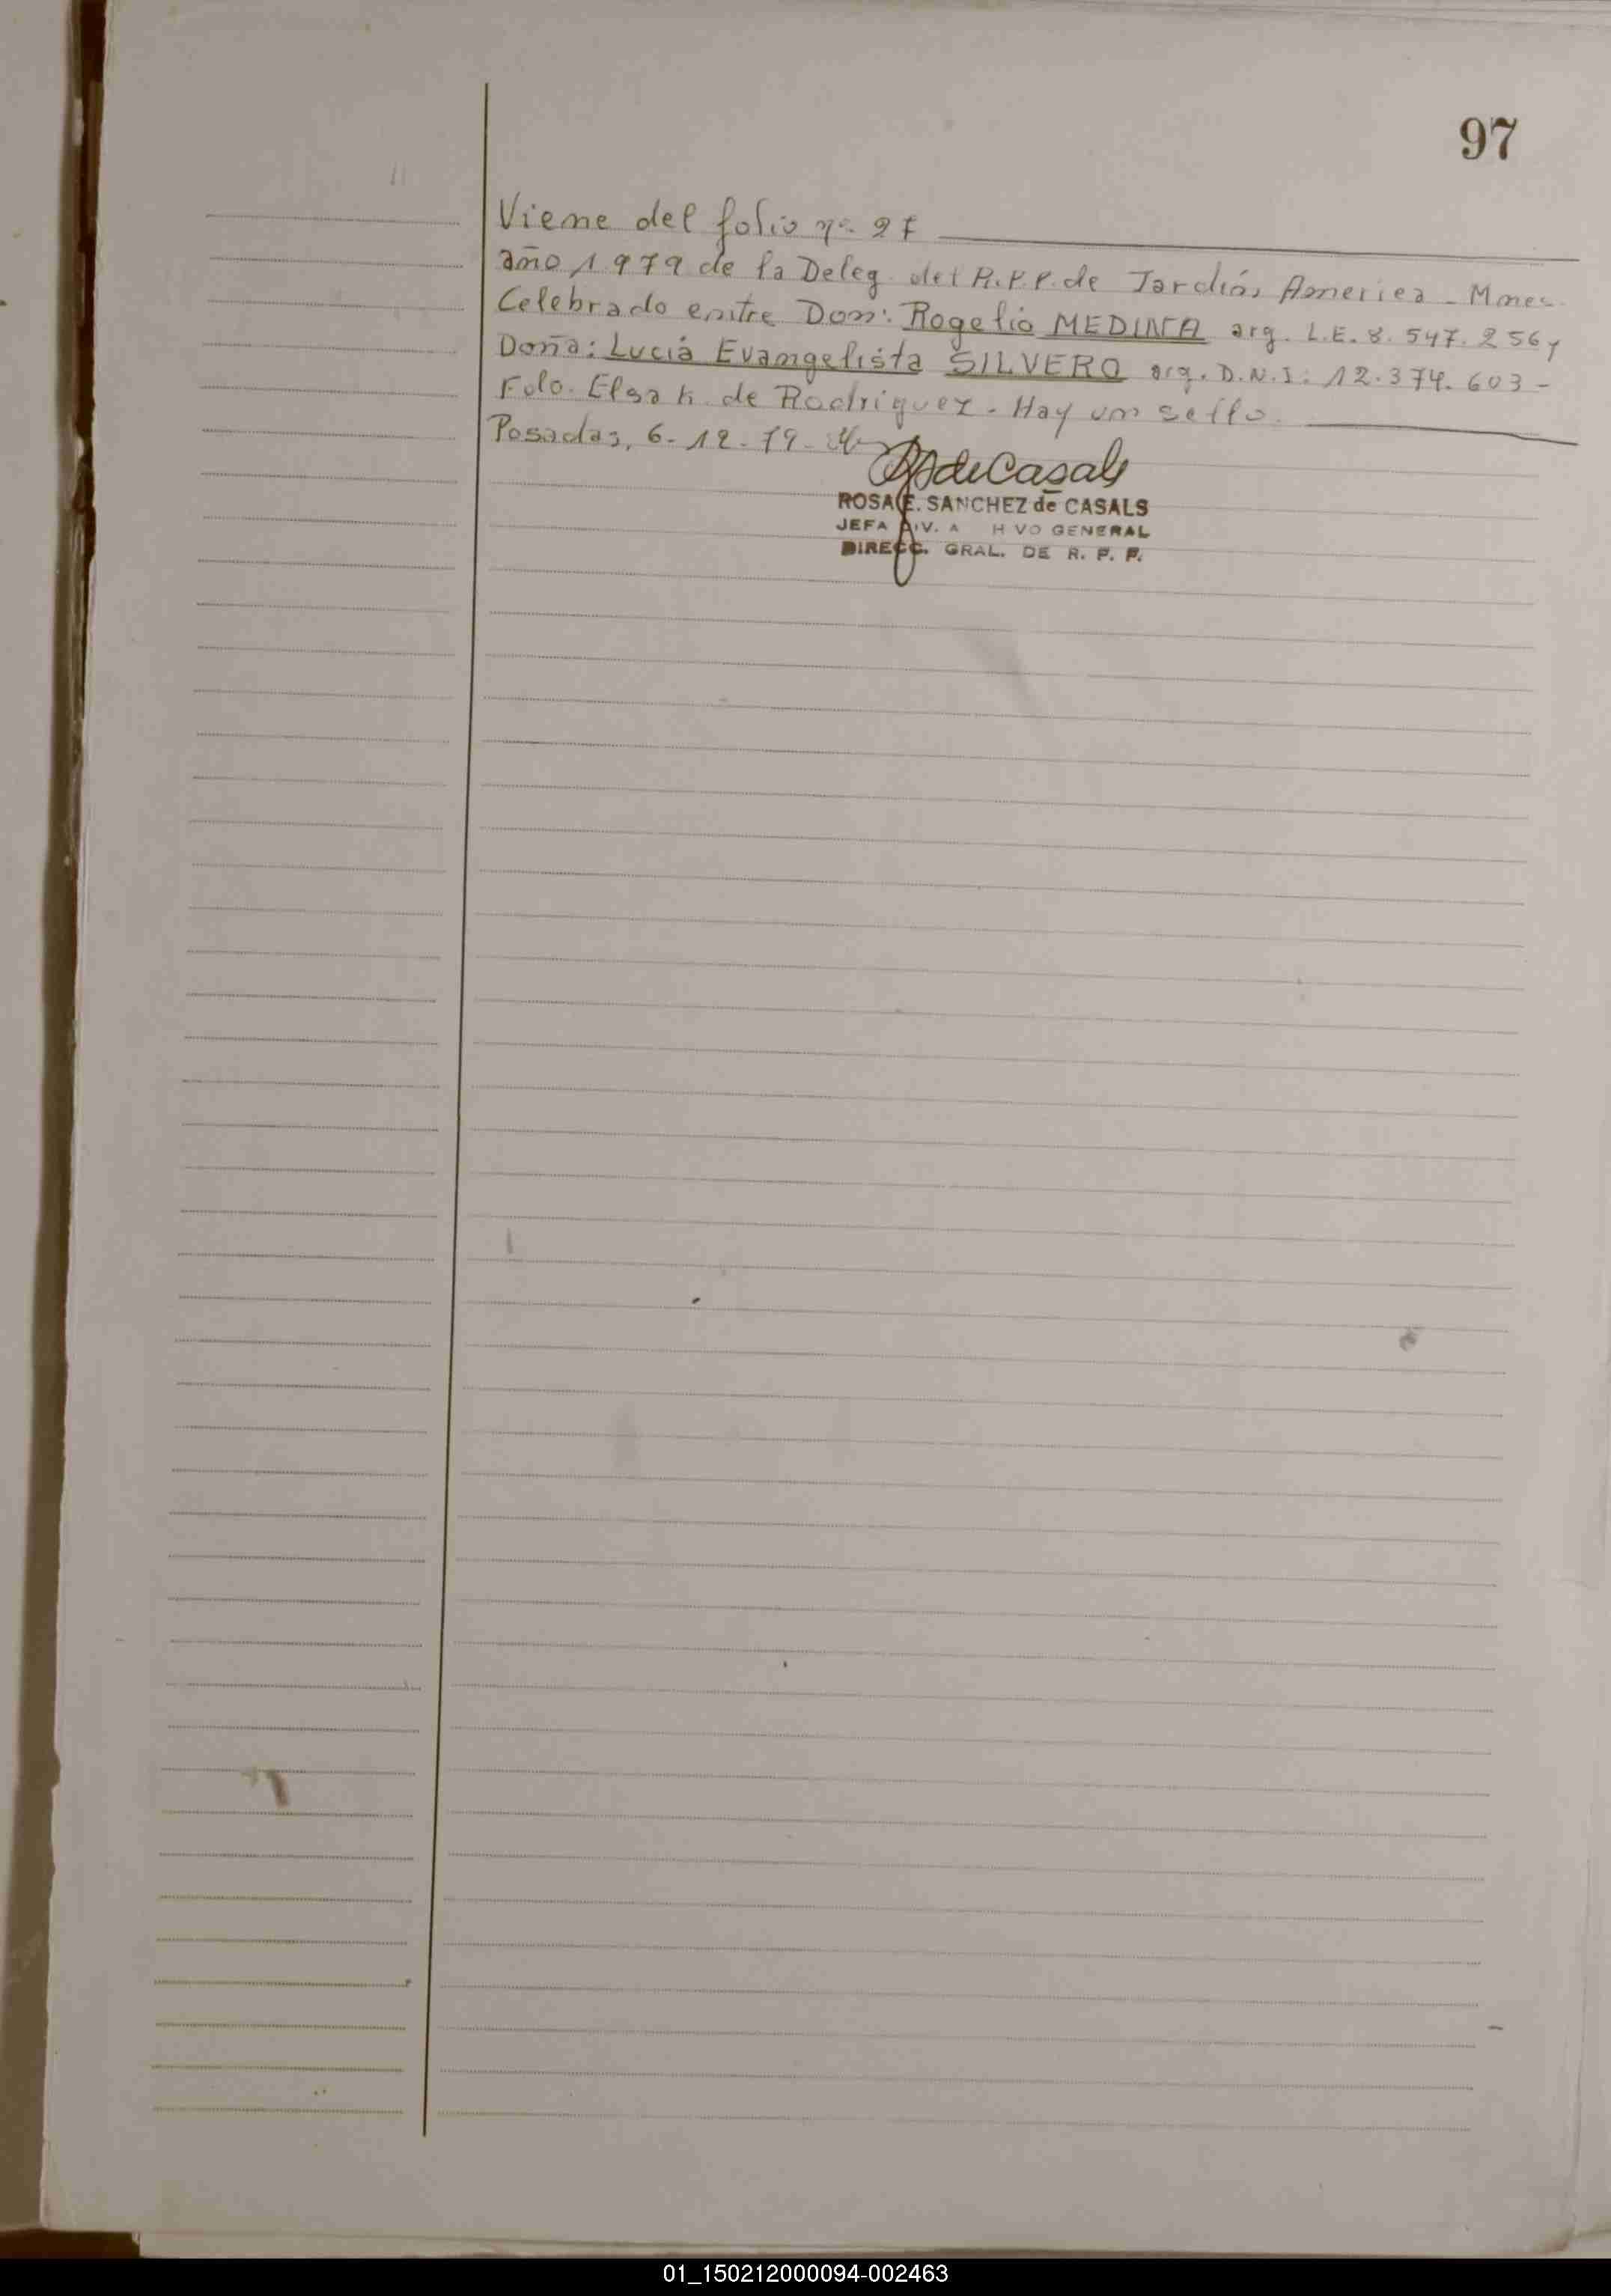 97
Viene del folio nº 27
año 1979 de la Deleg. del R.P.P. de Jardín America - Mnes.
Celebrado entre Don: Rogelio MEDINA arg. L.E. 8.547.256 y
Doña: Lucia Evangelista SILVERO arg. D.N.I: 12.374.603-
Fdo. Elsa K. de Rodriguez. Hay un sello.
Posadas, 6-12-79-
RSdeCasals
ROSA E. SANCHEZ de CASALS
JEFA DIV. A H VO GENERAL
DIRECC. GRAL. DE R. P. P.
01_150212000094-002463